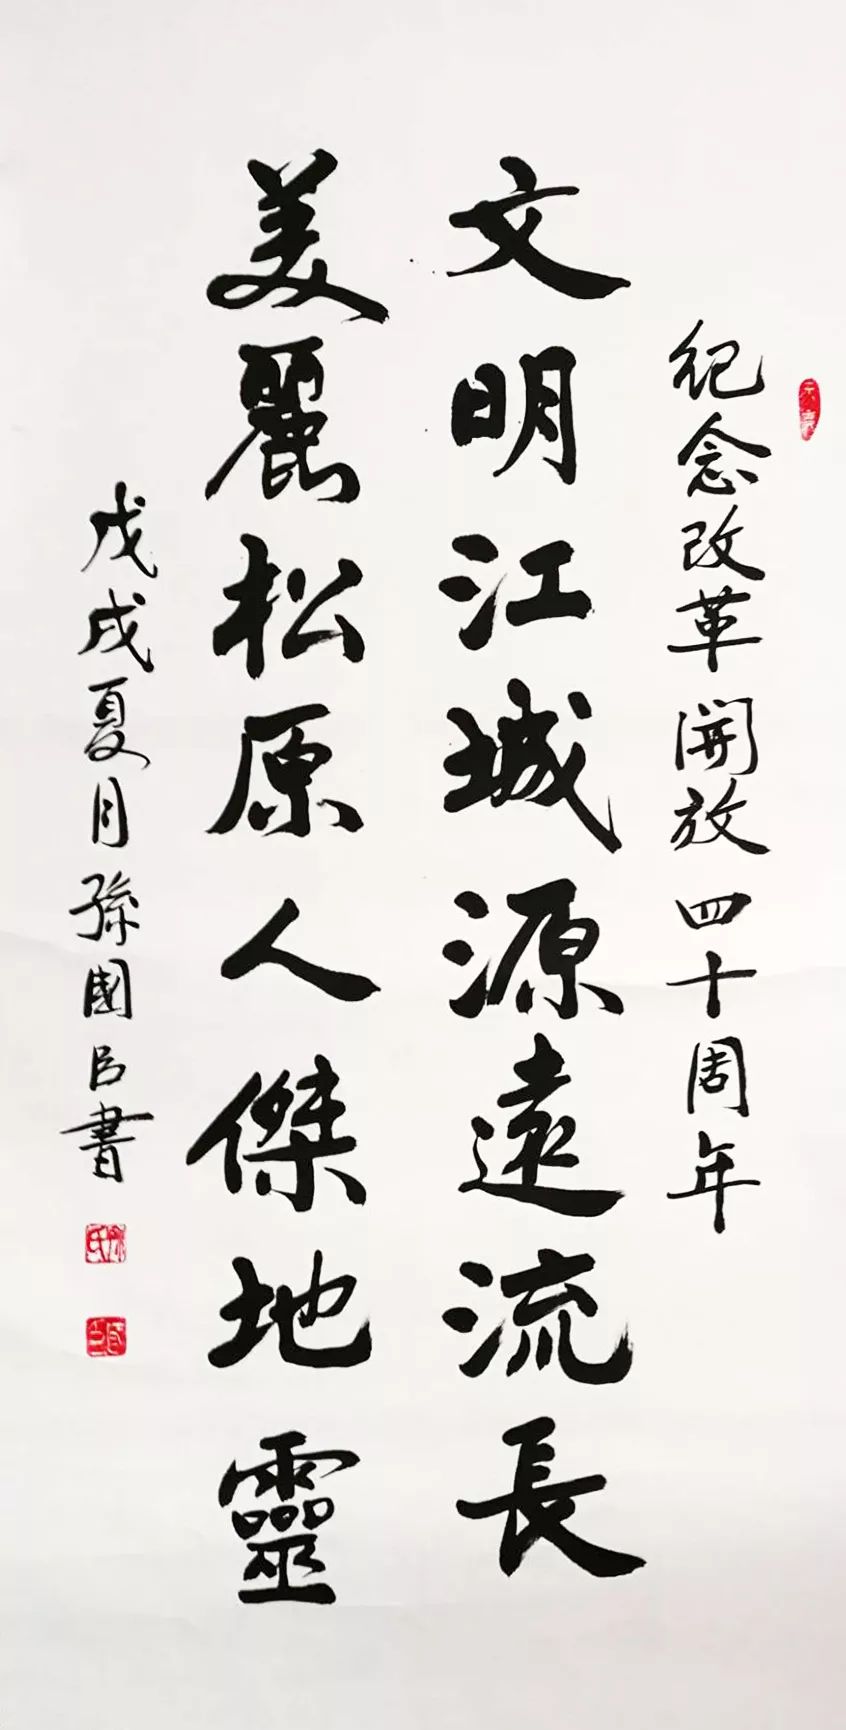 紀念改革開放四十周年
文明江城源遠流長
美麗松原人傑地靈
戊戌夏月孫國臣書